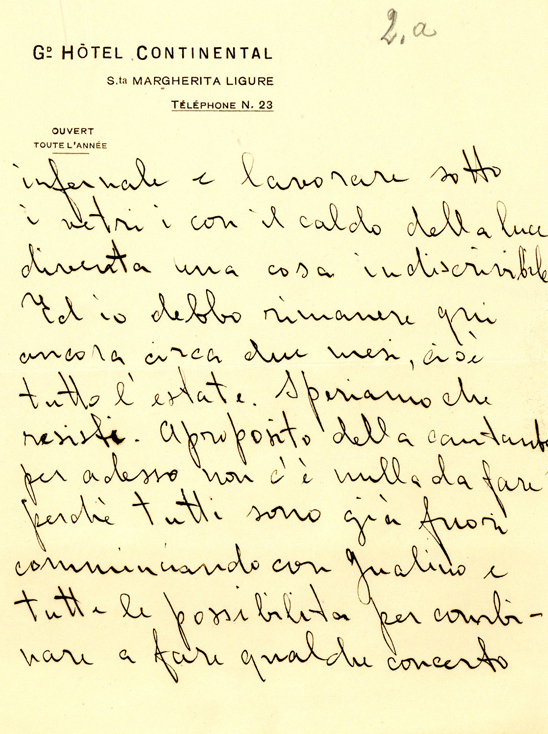 2.a
Gᴰ HÔTEL CONTINENTAL
S.ta MARGHERITA LIGURE
TÉLÉPHONE N. 23
OUVERT
TOUTE L'ANNÉE
infernale e lavorare sotto
i vetri i con il caldo della luce
diventa una cosa indiscrivibile
Ed io debbo rimanere qui
ancora circa due mesi, cioè
tutto l'estate. Speriamo che
resisti. Aproposito della cantante
per adesso non c'è nulla da fare
perchè tutti sono già fuori
comminciando con Gualino e
tutte le possibilita per combi-
nare a fare qualche concerto